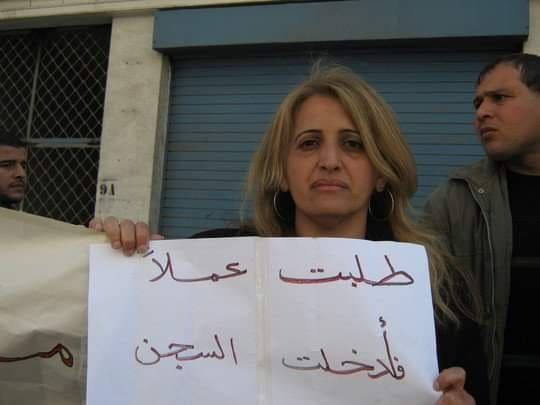 طلبت عملاً
فأدخلت السجن
9A